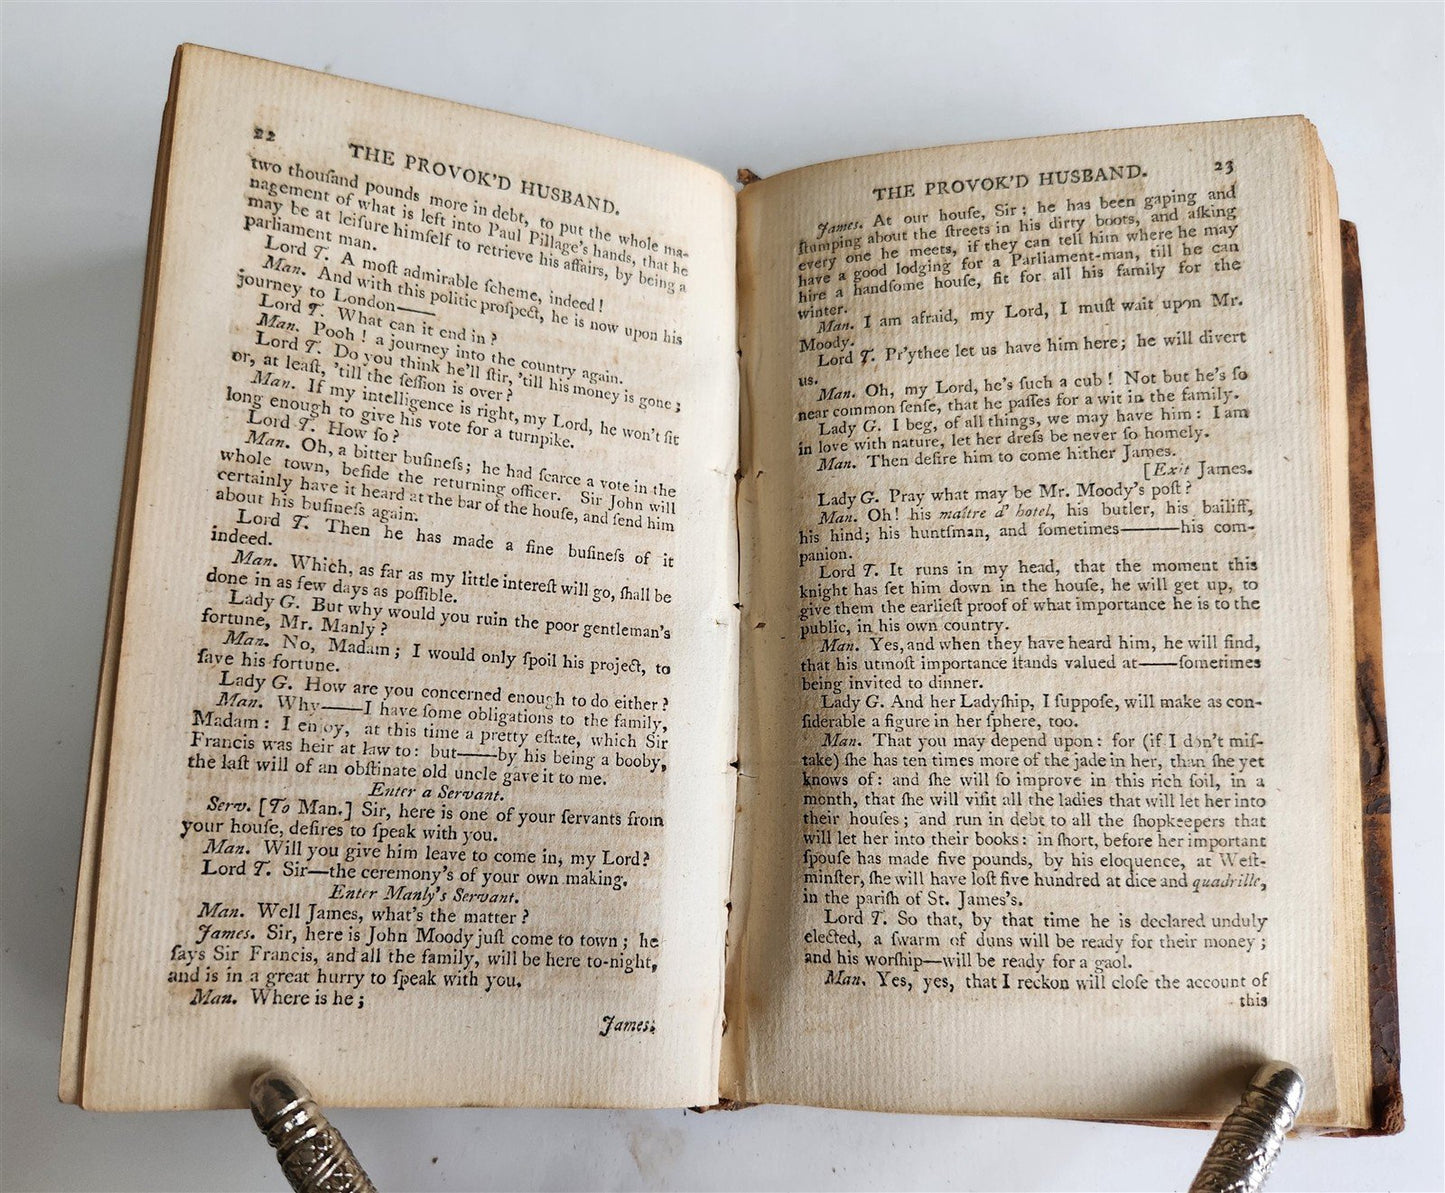 22
THE PROVOK'D HUSBAND.
two thouſand pounds more in debt, to put the whole ma-
nagement of what is left into Paul Pillage's hands, that he
may be at leiſure himſelf to retrieve his affairs, by being a
parliament man.
Lord T. A moſt admirable ſcheme, indeed!
Man. And with this politic proſpect, he is now upon his
journey to London——
Lord T. What can it end in?
Man. Pooh! a journey into the country again.
Lord T. Do you think he'll ſtir, 'till his money is gone;
or, at leaſt, 'till the ſeſſion is over?
Man. If my intelligence is right, my Lord, he won't ſit
long enough to give his vote for a turnpike.
Lord T. How ſo?
Man. Oh, a bitter buſineſs; he had ſcarce a vote in the
whole town, beſide the returning officer. Sir John will
certainly have it heard at the bar of the houſe, and ſend him
about his buſineſs again.
Lord T. Then he has made a fine buſineſs of it
indeed.
Man. Which, as far as my little intereſt will go, ſhall be
done in as few days as poſſible.
Lady G. But why would you ruin the poor gentleman's
fortune, Mr. Manly?
Man. No, Madam; I would only ſpoil his project, to
ſave his fortune.
Lady G. How are you concerned enough to do either?
Man. Why——I have ſome obligations to the family,
Madam: I enjoy, at this time a pretty eſtate, which Sir
Francis was heir at law to: but——by his being a booby,
the laſt will of an obſtinate old uncle gave it to me.
Enter a Servant.
Serv. [To Man.] Sir, here is one of your ſervants from
your houſe, deſires to ſpeak with you.
Man. Will you give him leave to come in, my Lord?
Lord T. Sir—the ceremony's of your own making.
Enter Manly's Servant.
Man. Well James, what's the matter?
James. Sir, here is John Moody juſt come to town; he
ſays Sir Francis, and all the family, will be here to-night,
and is in a great hurry to ſpeak with you.
Man. Where is he;
James.
THE PROVOK'D HUSBAND. 23
James. At our houſe, Sir; he has been gaping and
ſtumping about the ſtreets in his dirty boots, and aſking
every one he meets, if they can tell him where he may
have a good lodging for a Parliament-man, till he can
hire a handſome houſe, fit for all his family for the
winter.
Man. I am afraid, my Lord, I muſt wait upon Mr.
Moody.
Lord T. Pr'ythee let us have him here; he will divert
us.
Man. Oh, my Lord, he's ſuch a cub! Not but he's ſo
near common ſenſe, that he paſſes for a wit in the family.
Lady G. I beg, of all things, we may have him: I am
in love with nature, let her dreſs be never ſo homely.
Man. Then deſire him to come hither James.
[Exit James.
Lady G. Pray what may be Mr. Moody's poſt?
Man. Oh! his maître d' hotel, his butler, his bailiff,
his hind; his huntſman, and ſometimes———his com-
panion.
Lord T. It runs in my head, that the moment this
knight has ſet him down in the houſe, he will get up, to
give them the earlieſt proof of what importance he is to the
public, in his own country.
Man. Yes, and when they have heard him, he will find,
that his utmoſt importance ſtands valued at——ſometimes
being invited to dinner.
Lady G. And her Ladyſhip, I ſuppoſe, will make as con-
ſiderable a figure in her ſphere, too.
Man. That you may depend upon: for (if I don't miſ-
take) ſhe has ten times more of the jade in her, than ſhe yet
knows of: and ſhe will ſo improve in this rich ſoil, in a
month, that ſhe will viſit all the ladies that will let her into
their houſes; and run in debt to all the ſhopkeepers that
will let her into their books: in ſhort, before her important
ſpouſe has made five pounds, by his eloquence, at Weſt-
minſter, ſhe will have loſt five hundred at dice and quadrille,
in the pariſh of St. James's.
Lord T. So that, by that time he is declared unduly
elected, a ſwarm of duns will be ready for their money;
and his worſhip—will be ready for a gaol.
Man. Yes, yes, that I reckon will cloſe the account of
this